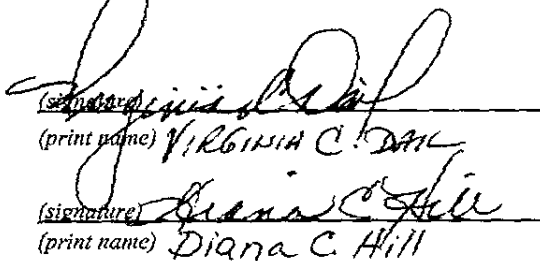 (signature) Virginia C. Dail
(print name) VIRGINIA C. DAIL
(signature) Diana C Hill
(print name) Diana C. Hill